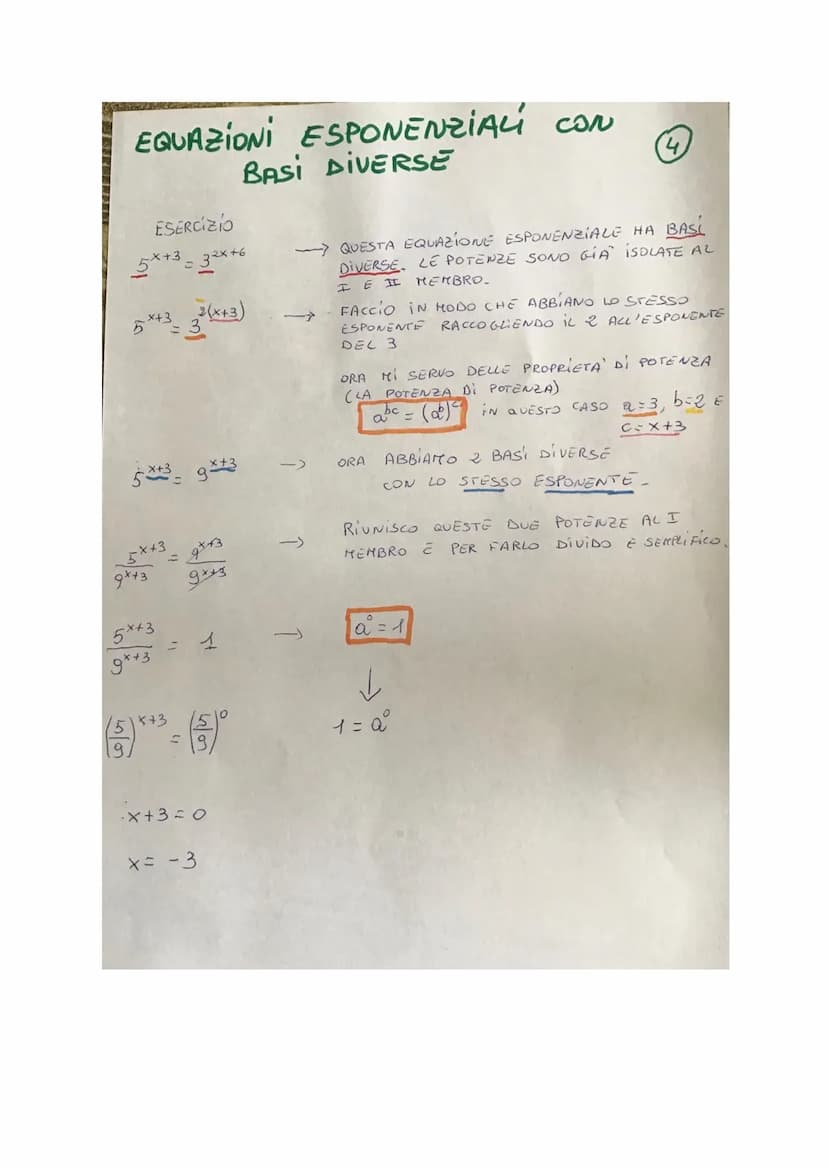 EQUAZIONI ESPONENZIALI CON
BASI DIVERSE
4
ESERCIZIO
5^(x+3) = 3^(2x+6) → QUESTA EQUAZIONE ESPONENZIALE HA BASI
DIVERSE. LE POTENZE SONO GIA' ISOLATE AL
I E II MEMBRO.
5^(x+3) = 3^(2(x+3)) → FACCIO IN MODO CHE ABBIANO LO STESSO
ESPONENTE RACCOGLIENDO IL 2 ALL'ESPONENTE
DEL 3
ORA MI SERVO DELLE PROPRIETA' DI POTENZA
(LA POTENZA DI POTENZA)
a^(bc) = (a^b)^c IN QUESTO CASO a=3, b=2 E
c=x+3
5^(x+3) = 9^(x+3) → ORA ABBIAMO 2 BASI DIVERSE
CON LO STESSO ESPONENTE.
5^(x+3)/9^(x+3) = 9^(x+3)/9^(x+3) → RIUNISCO QUESTE DUE POTENZE AL I
MEMBRO E PER FARLO DIVIDO E SEMPLIFICO.
5^(x+3)/9^(x+3) = 1 → a^0 = 1
↓
(5/9)^(x+3) = (5/9)^0 1 = a^0
x+3=0
x= -3